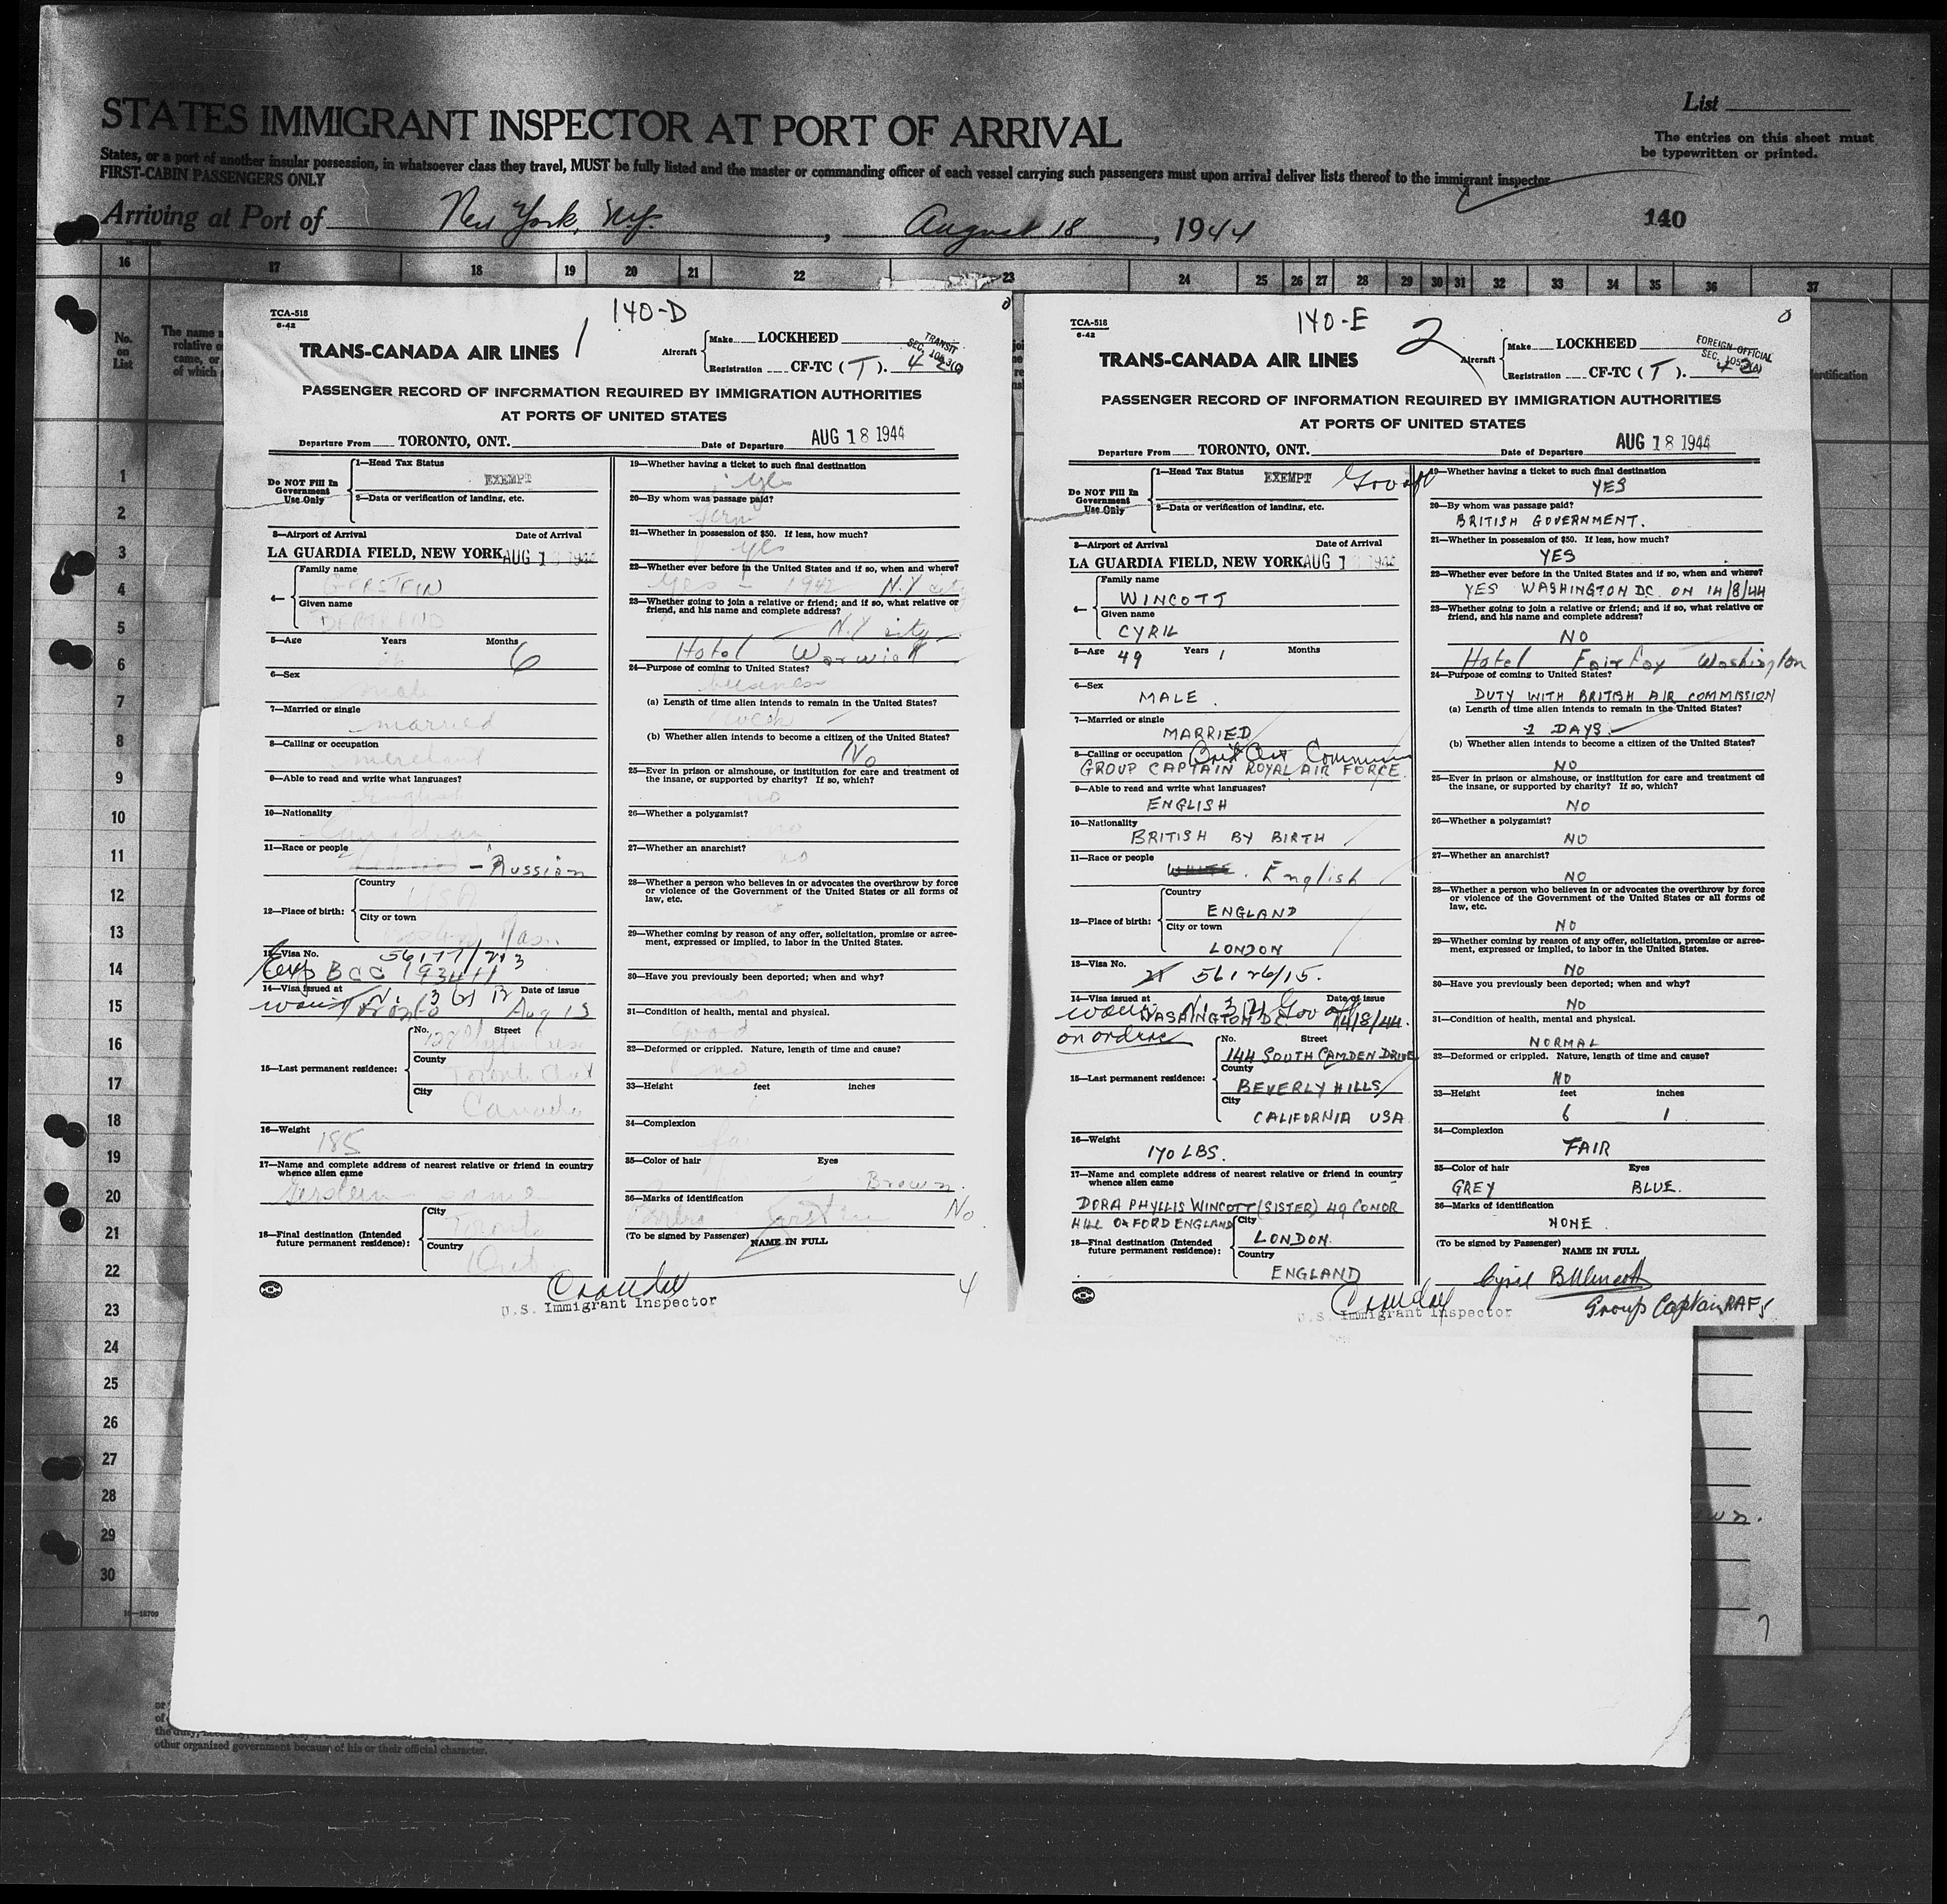 STATES IMMIGRANT INSPECTOR AT PORT OF ARRIVAL
List
The entries on this sheet must
be typewritten or printed.
States, or a port of another insular possession, in whatsoever class they travel, MUST be fully listed and the master or commanding officer of each vessel carrying such passengers must upon arrival deliver lists thereof to the immigrant inspector
FIRST-CABIN PASSENGERS ONLY
Arriving at Port of New York, N.Y. , August 18 , 1944
140
16 17 18 19 20 21 22 23 24 25 26 27 28 29 30 31 32 33 34 35 36 37
No.
on
List
1
2
3
4
5
6
7
8
9
10
11
12
13
14
15
16
17
18
19
20
21
22
23
24
25
26
27
28
29
30
TCA-518
6-42
140-D
TRANS-CANADA AIR LINES 1
Aircraft Make LOCKHEED
Registration CF-TC (T). 42
TRANSIT
PASSENGER RECORD OF INFORMATION REQUIRED BY IMMIGRATION AUTHORITIES
AT PORTS OF UNITED STATES
Departure From TORONTO, ONT. Date of Departure AUG 18 1944
Do NOT Fill In
Government
Use Only
1—Head Tax Status EXEMPT
2—Data or verification of landing, etc.
3—Airport of Arrival Date of Arrival
LA GUARDIA FIELD, NEW YORK AUG 1 1944
4— Family name
GERSTEIN
Given name
BERTRAND
5—Age Years Months
6
6—Sex
male
7—Married or single
married
8—Calling or occupation
merchant
9—Able to read and write what languages?
English
10—Nationality
Canadian
11—Race or people
- Russian
12—Place of birth: Country
USA
City or town
Mass.
13—Visa No. 56177/213
14—Visa issued at Date of issue
Toronto Aug 15
15—Last permanent residence: No. Street
County
Toronto Ont
City
Canada
16—Weight
185
17—Name and complete address of nearest relative or friend in country
whence alien came
Gerstein same
18—Final destination (Intended
future permanent residence): City
Toronto
Country
Ont
19—Whether having a ticket to such final destination
yes
20—By whom was passage paid?
firm
21—Whether in possession of $50. If less, how much?
yes
22—Whether ever before in the United States and if so, when and where?
yes - 1942 N.Y city
23—Whether going to join a relative or friend; and if so, what relative or
friend, and his name and complete address?
N.Y city
Hotel Warwick
24—Purpose of coming to United States?
business
(a) Length of time alien intends to remain in the United States?
1 week
(b) Whether alien intends to become a citizen of the United States?
No
25—Ever in prison or almshouse, or institution for care and treatment of
the insane, or supported by charity? If so, which?
no
26—Whether a polygamist?
no
27—Whether an anarchist?
no
28—Whether a person who believes in or advocates the overthrow by force
or violence of the Government of the United States or all forms of
law, etc.
no
29—Whether coming by reason of any offer, solicitation, promise or agree-
ment, expressed or implied, to labor in the United States.
no
30—Have you previously been deported; when and why?
no
31—Condition of health, mental and physical.
good
32—Deformed or crippled. Nature, length of time and cause?
no
33—Height feet inches
34—Complexion
fair
35—Color of hair Eyes
Brown
36—Marks of identification
No
(To be signed by Passenger) NAME IN FULL
U.S. Immigrant Inspector
4
TCA-518
6-42
140-E
TRANS-CANADA AIR LINES 2
Aircraft Make LOCKHEED
Registration CF-TC (T).
FOREIGN OFFICIAL
PASSENGER RECORD OF INFORMATION REQUIRED BY IMMIGRATION AUTHORITIES
AT PORTS OF UNITED STATES
Departure From TORONTO, ONT. Date of Departure AUG 18 1944
Do NOT Fill In
Government
Use Only
1—Head Tax Status EXEMPT Gov off
2—Data or verification of landing, etc.
3—Airport of Arrival Date of Arrival
LA GUARDIA FIELD, NEW YORK AUG 1 1944
4— Family name
WINCOTT
Given name
CYRIL
5—Age 49 Years 1 Months
6—Sex
MALE.
7—Married or single
MARRIED
8—Calling or occupation
GROUP CAPTAIN ROYAL AIR FORCE
9—Able to read and write what languages?
ENGLISH
10—Nationality
BRITISH BY BIRTH
11—Race or people
English
12—Place of birth: Country
ENGLAND
City or town
LONDON
13—Visa No.
56126/15.
14—Visa issued at Date of issue
WASHINGTON D.C. 14/8/44.
on orders
15—Last permanent residence: No. Street
144 SOUTH CAMDEN DRIVE
County
BEVERLY HILLS
City
CALIFORNIA USA
16—Weight
170 LBS.
17—Name and complete address of nearest relative or friend in country
whence alien came
DORA PHYLLIS WINCOTT (SISTER) 49 CONOR
HILL OXFORD ENGLAND
18—Final destination (Intended
future permanent residence): City
LONDON.
Country
ENGLAND
19—Whether having a ticket to such final destination
YES
20—By whom was passage paid?
BRITISH GOVERNMENT.
21—Whether in possession of $50. If less, how much?
YES
22—Whether ever before in the United States and if so, when and where?
YES WASHINGTON D.C. ON 14/8/44
23—Whether going to join a relative or friend; and if so, what relative or
friend, and his name and complete address?
NO
Hotel Fairfax Washington
24—Purpose of coming to United States?
DUTY WITH BRITISH AIR COMMISSION
(a) Length of time alien intends to remain in the United States?
2 DAYS.
(b) Whether alien intends to become a citizen of the United States?
NO
25—Ever in prison or almshouse, or institution for care and treatment of
the insane, or supported by charity? If so, which?
NO
26—Whether a polygamist?
NO
27—Whether an anarchist?
NO
28—Whether a person who believes in or advocates the overthrow by force
or violence of the Government of the United States or all forms of
law, etc.
NO
29—Whether coming by reason of any offer, solicitation, promise or agree-
ment, expressed or implied, to labor in the United States.
NO
30—Have you previously been deported; when and why?
NO
31—Condition of health, mental and physical.
NORMAL
32—Deformed or crippled. Nature, length of time and cause?
NO
33—Height feet inches
6 1
34—Complexion
FAIR
35—Color of hair Eyes
GREY BLUE.
36—Marks of identification
NONE.
(To be signed by Passenger) NAME IN FULL
Cyril B Wincott
Group Captain RAF
U.S. Immigrant Inspector
other organized government because of his or their official character.